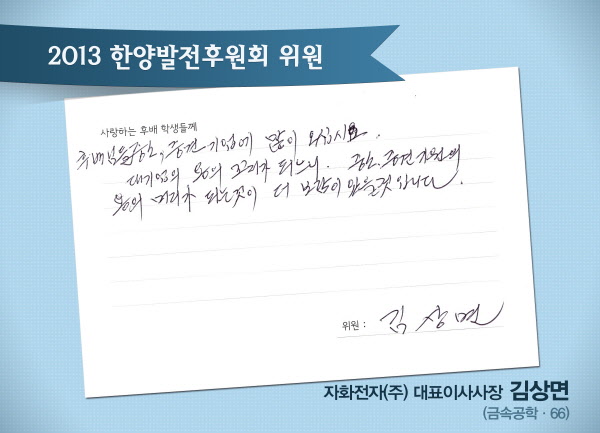 2013 한양발전후원회 위원
사랑하는 후배 학생들께
후배님들 중소, 중견기업에 많이 오십시오.
대기업의 용의 꼬리가 되느니. 중소.중견기업의
용의 머리가 되는것이 더 보람이 있을것 입니다.
위원 : 김상면
자화전자(주) 대표이사사장 김상면
(금속공학 · 66)